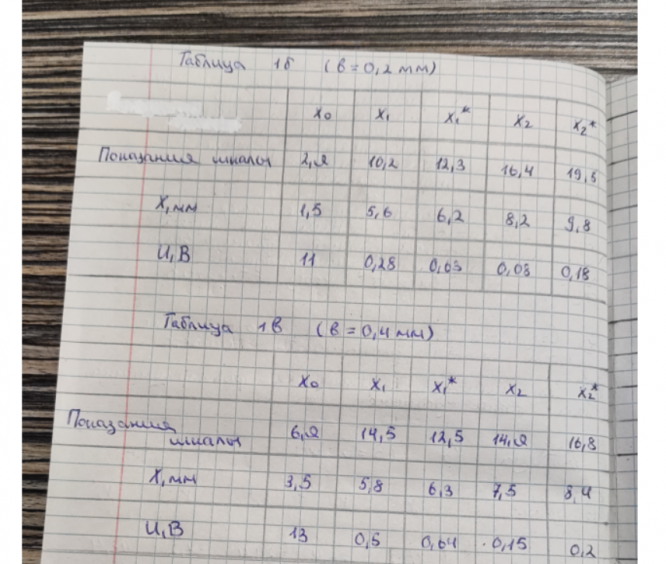 Таблица 1б (в = 0,2 мм)
X₀ X₁ X₁* X₂ X₂*
Показания шкалы 2,2 10,2 12,3 16,4 19,5
X, мм 1,5 5,6 6,2 8,2 9,8
U, В 11 0,28 0,03 0,08 0,18
Таблица 1в (в = 0,4 мм)
X₀ X₁ X₁* X₂ X₂*
Показания
шкалы 6,2 14,5 12,5 14,2 16,8
X, мм 3,5 5,8 6,3 7,5 8,4
U, В 13 0,5 0,64 0,15 0,2